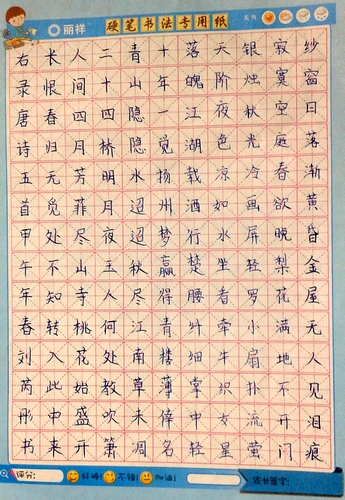 丽祥 硬笔书法专用纸 天气
纱窗日落渐黄昏金屋无人见泪痕
寂寞空庭春欲晚梨花满地不开门
银烛秋光冷画屏轻罗小扇扑流萤
天阶夜色凉如水坐看牵牛织女星
落魄江湖载酒行楚腰纤细掌中轻
十年一觉扬州梦赢得青楼薄倖名
青山隐隐水迢迢秋尽江南草未凋
二十四桥明月夜玉人何处教吹箫
人间四月芳菲尽山寺桃花始盛开
长恨春归无觅处不知转入此中来
右录唐诗五首甲午年春刘芮彤书
评分: 好棒! 不错! 加油! 家长签字: